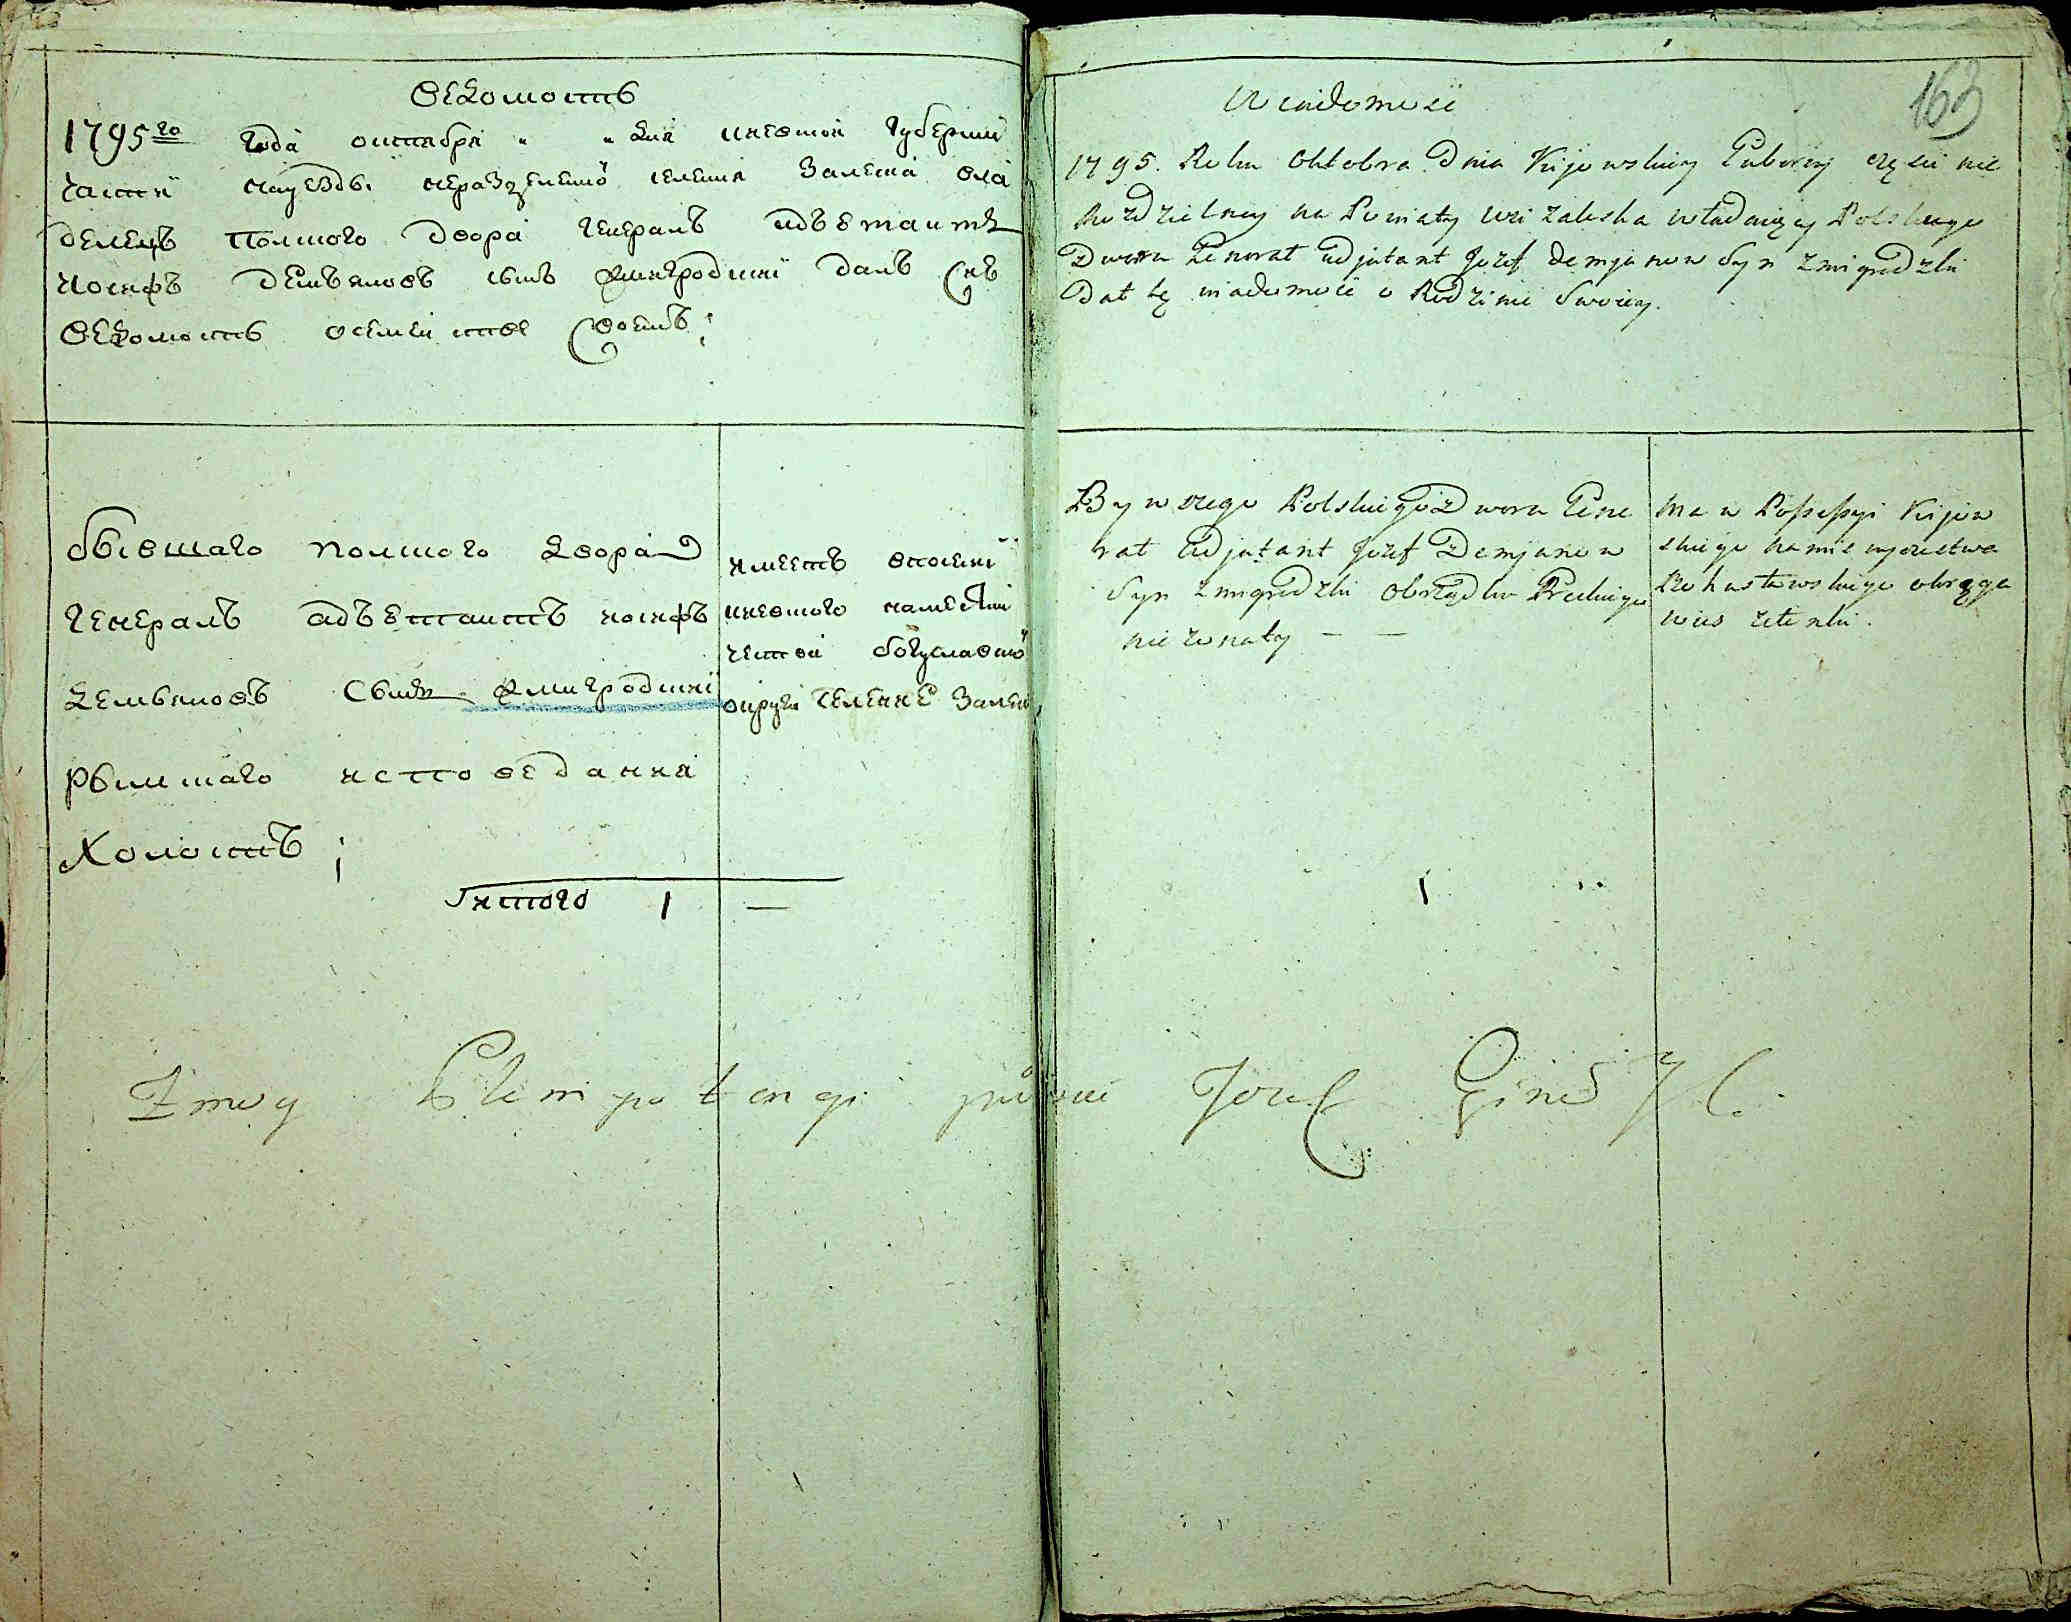 Ведомость
1795го года октября " " дня киевской губернии
части науезды неразделенной селения Залеська вла
делецъ польского двора генералъ адъютантъ
иосифъ демьяновъ сынъ жмигродский далъ сию
ведомость о семействе своемъ
бывшаго польского двора
генералъ адъютантъ иосифъ
демьяновъ сынъ жмигродский
рымскаго исповедания
холостъ
имеетъ
киевского намест
чества богуславской
округи селение Залеска
итого 1 —
Wiadomość
163
1795. Roku Oktobra Dnia Kijowskiey Gubernij części nie
Rozdzielney na Powiaty wsi Zaleska władaiący Polskiego
Dworu Generał Adjutant Jozef Demjanow Syn Zmigrodzki
Dał tę wiadomość o Rodzinie Swoiey.
Bywszego Polskiego Dworu Gene
rał Adjutant Jozef Demjanow
Syn Zmigrodzki Obrządku Greckiego
nie żonaty — —
Ma w Possessyi Kijow
skiego Namiesnyczestwa
Bohusławskiego okręga
wies
1
Z mocy Plenipotencyi Jozef